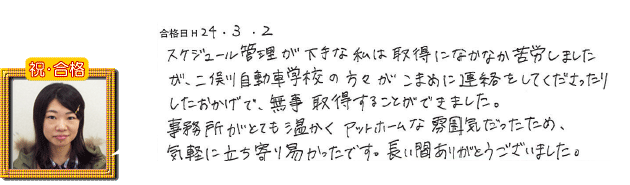 合格日 H 24.3.2
スケジュール管理が下手な私は取得になかなか苦労しました
が、二俣川自動車学校の方々がこまめに連絡をしてくださったり
したおかげで、無事取得することができました。
事務所がとても温かくアットホームな雰囲気だったため、
気軽に立ち寄り易かったです。長い間ありがとうございました。
祝・合格